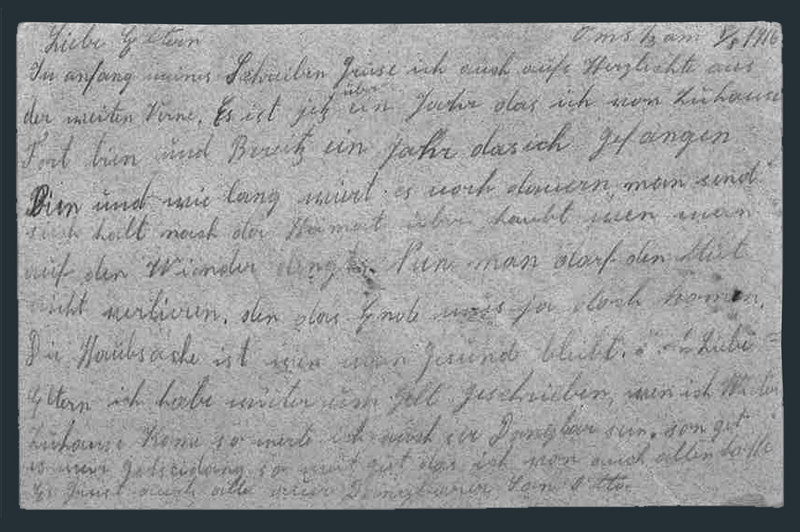 Liebe Eltern Omsk am 8/8 1916
In anfang meines Schreiben Grüse ich euch aufs Herzlichte aus
der weiten Ferne. Es ist jetz über ein Jahr das ich von Zuhause
Fort bin und Bereitz ein jahr dasich gefangen
Bien und wie lang wiert es noch dauern, man send
sich halt nach der Heimart über haubt wen man
auf den Wiender dengt. Nun man darf den Mut
nicht verlieren, den das Ende mus ja doch komen.
Die Haubsache ist wen man gesund bleibt. Liebe
Eltern ich habe weiter um Gelt geschrieben, wen ich Wieder
Zuhause kome so werte ich auch ser Dangbar sein. son get
es mir so weit gut das ich von euch allen hoffe
Es Grust euch alle euer Dangbarer Son Otto